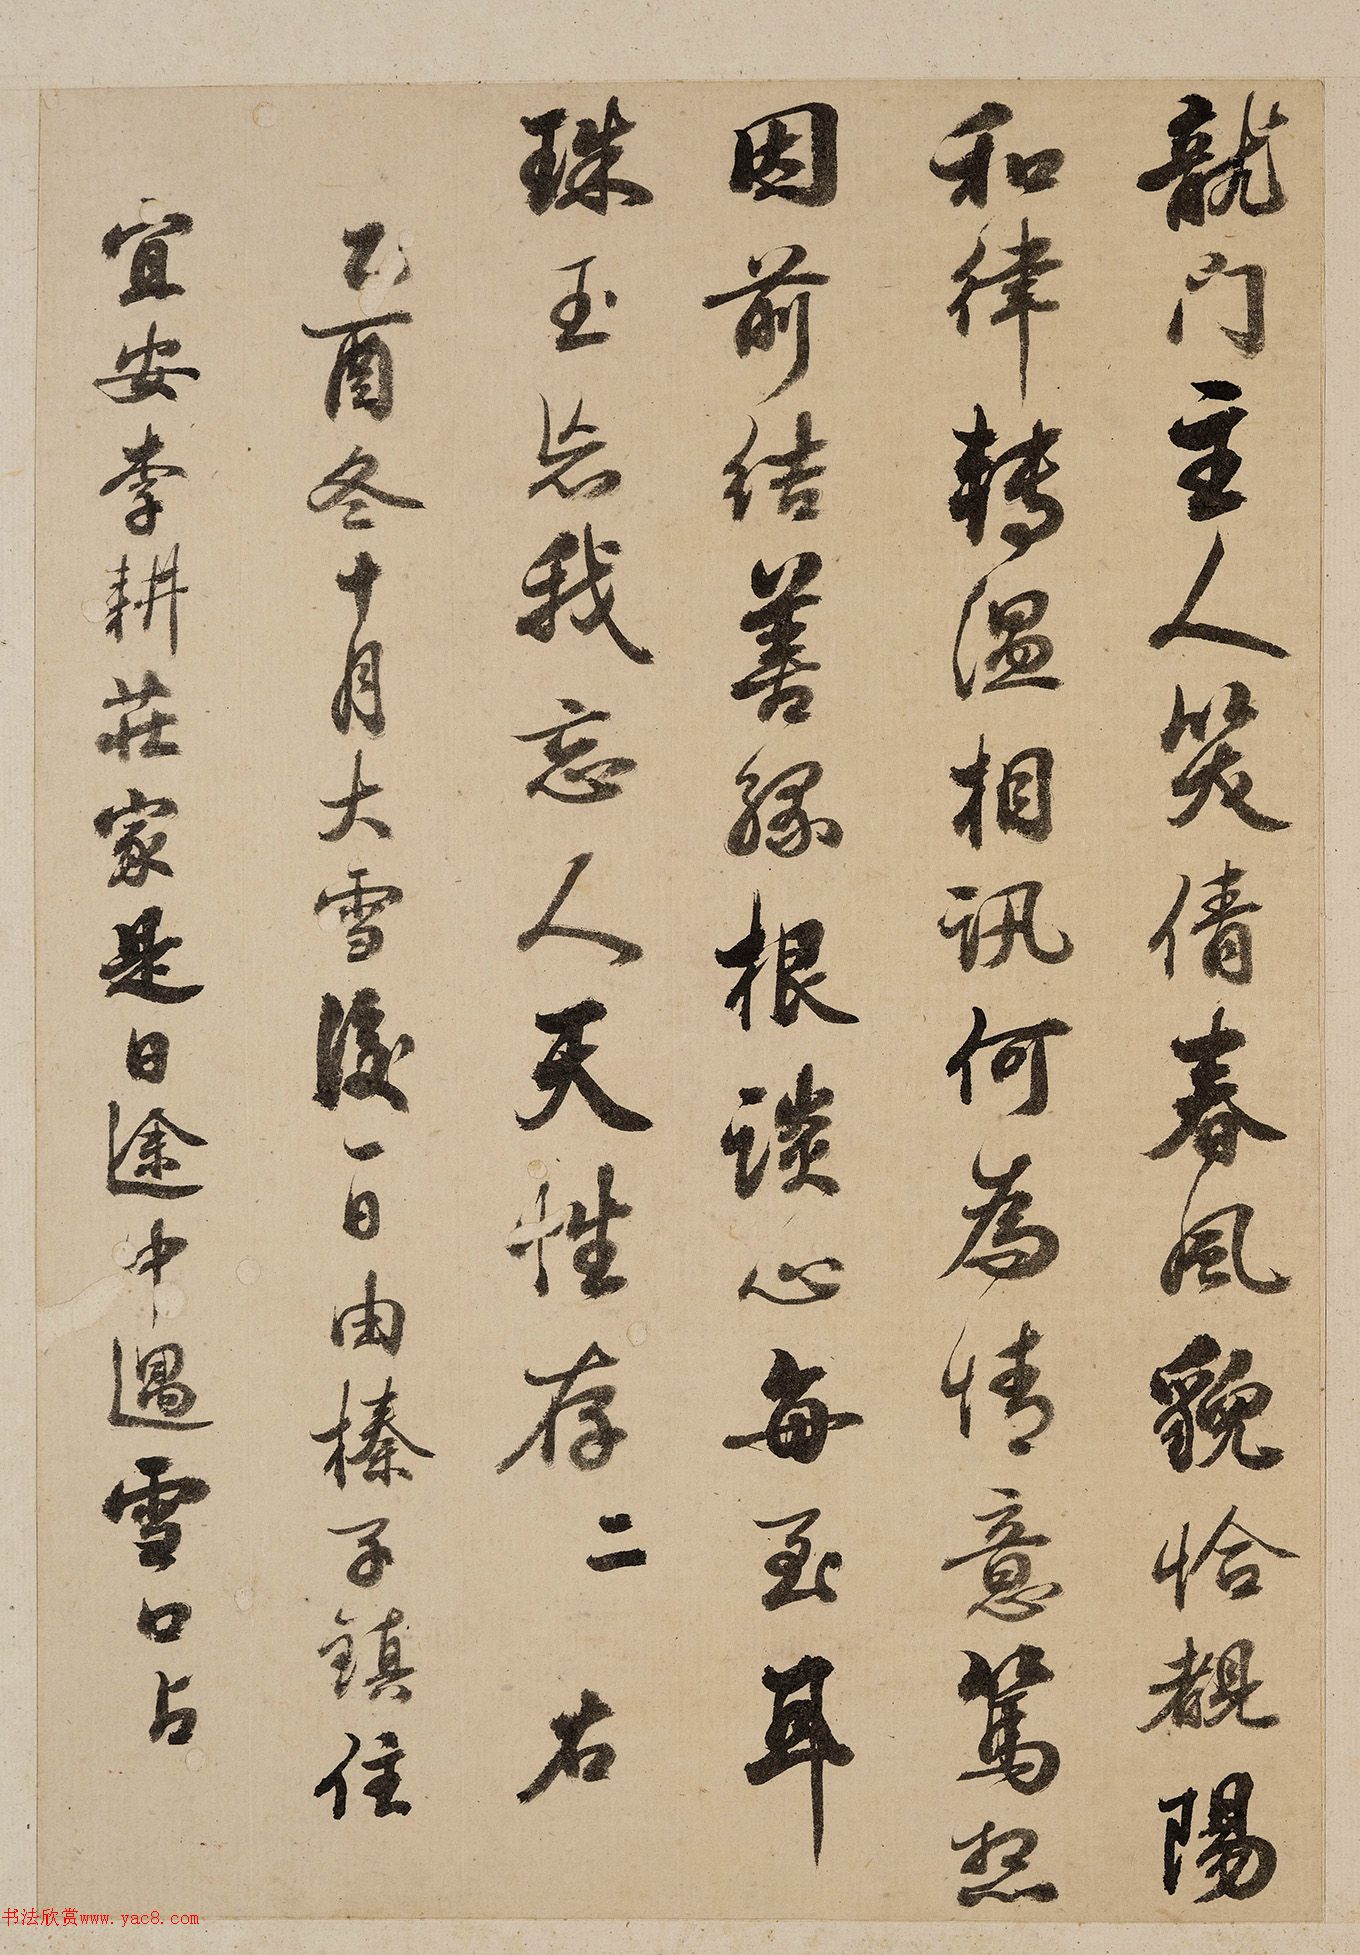 龍門主人笑倩春風貌恰覩陽
和律轉溫相訊何為情意篤想
因前結善緣根談心每至耳
珠玉忘我忘人天性存二 右
乙酉冬十月大雪後一日由榛子鎮住
宜安李耕莊家是日途中遇雪口占
书法欣赏www.yac8.com